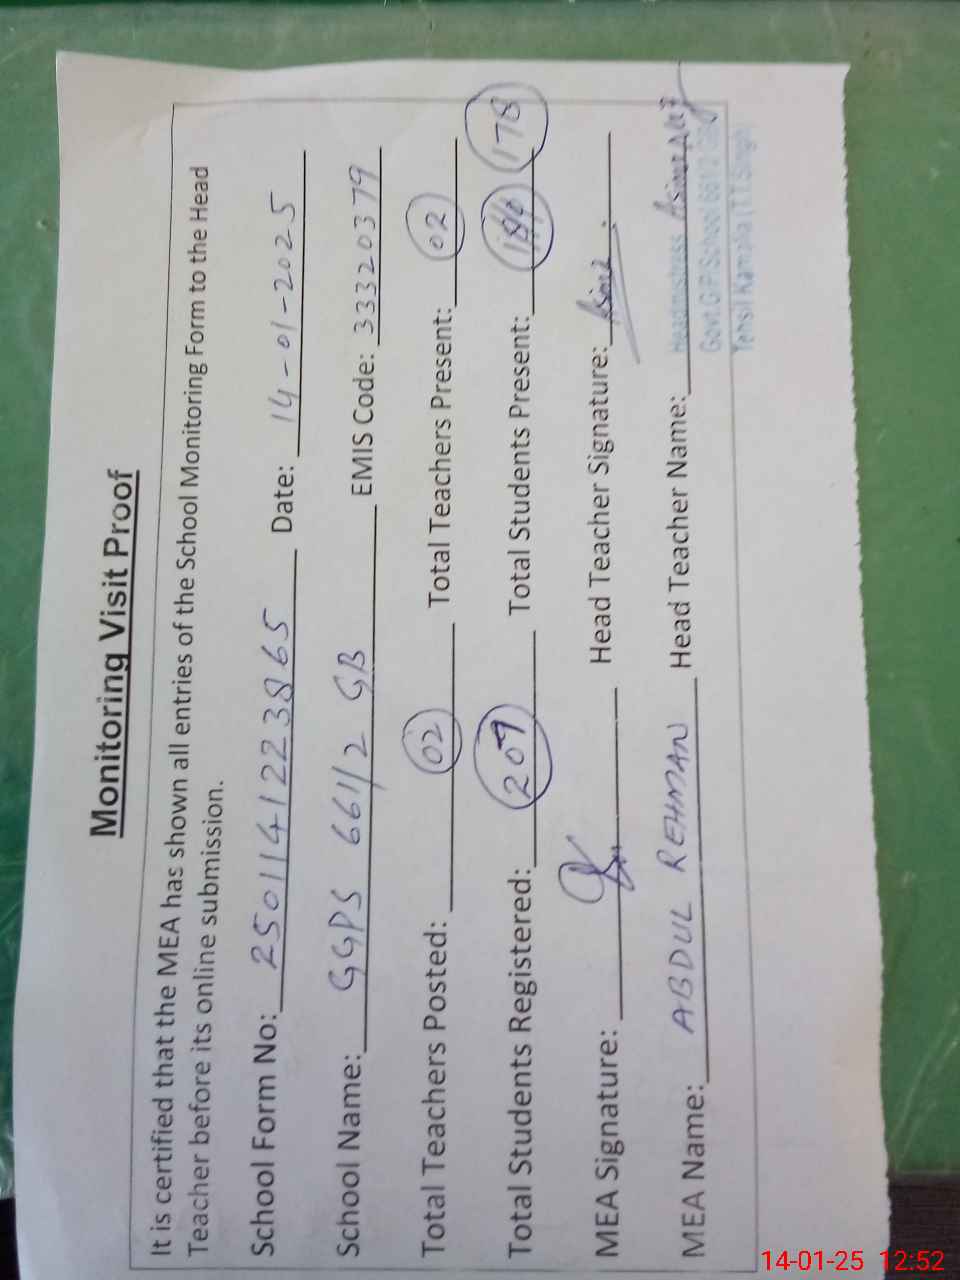 Monitoring Visit Proof
It is certified that the MEA has shown all entries of the School Monitoring Form to the Head
Teacher before its online submission.
School Form No: 2501141223865 Date: 14-01-2025
School Name: GGPS 661/2 GB EMIS Code: 33320379
Total Teachers Posted: 02 Total Teachers Present: 02
Total Students Registered: 207 Total Students Present: 178
MEA Signature: Head Teacher Signature: Asima
MEA Name: ABDUL REHMAN Head Teacher Name: Asima
Headmistress
Govt.G.P.School 661/2
Tehsil Kamalia (T.T.Singh)
14-01-25 12:52